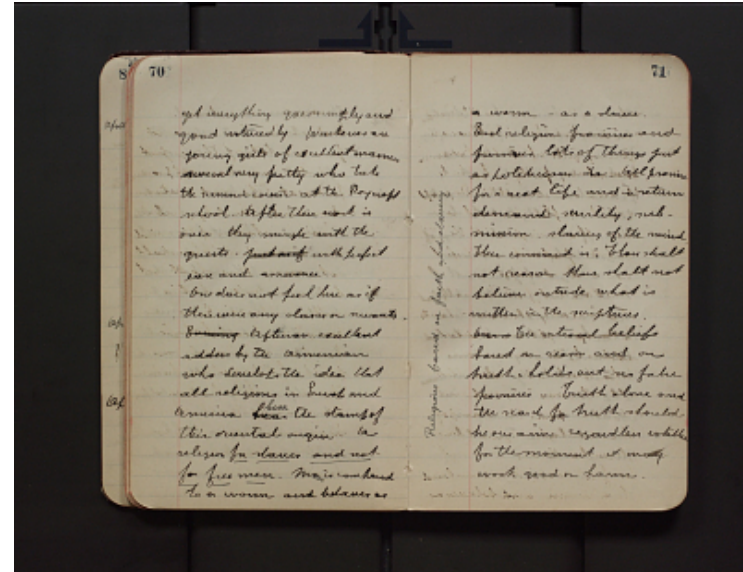 8
70
yet everything goes simply and
good naturedly. Waitresses are
young girls of excellent manners
several very pretty who take
the summer course at the Roycroft
school. After their work is
over they mingle with the
guests with perfect
ease and assurance.
One does not feel here as if
there were any classes or servants.
Evening After an excellent
address by the Armenian
who develops the idea that
all religions in Europe and
America bear the stamp of
their oriental origin. A
religion for slaves and not
for free men. Man is compared
to a worm and behaves as
71
a worm - as a slave.
But religion promises and
promises lots of things just
as politicians do. All promise
for a next life and in return
demands, servility, sub-
mission, slavery of the mind
Thee command is: Thou shalt
not reason thou shalt not
believe outside what is
written in the scriptures.
The rational beliefs
based on reason and on
truth holds out no false
promises. Truth alone and
the search for truth should
be our aim regardless whether
for the moment it may
work good or harm.
Religions based on faith and slavery